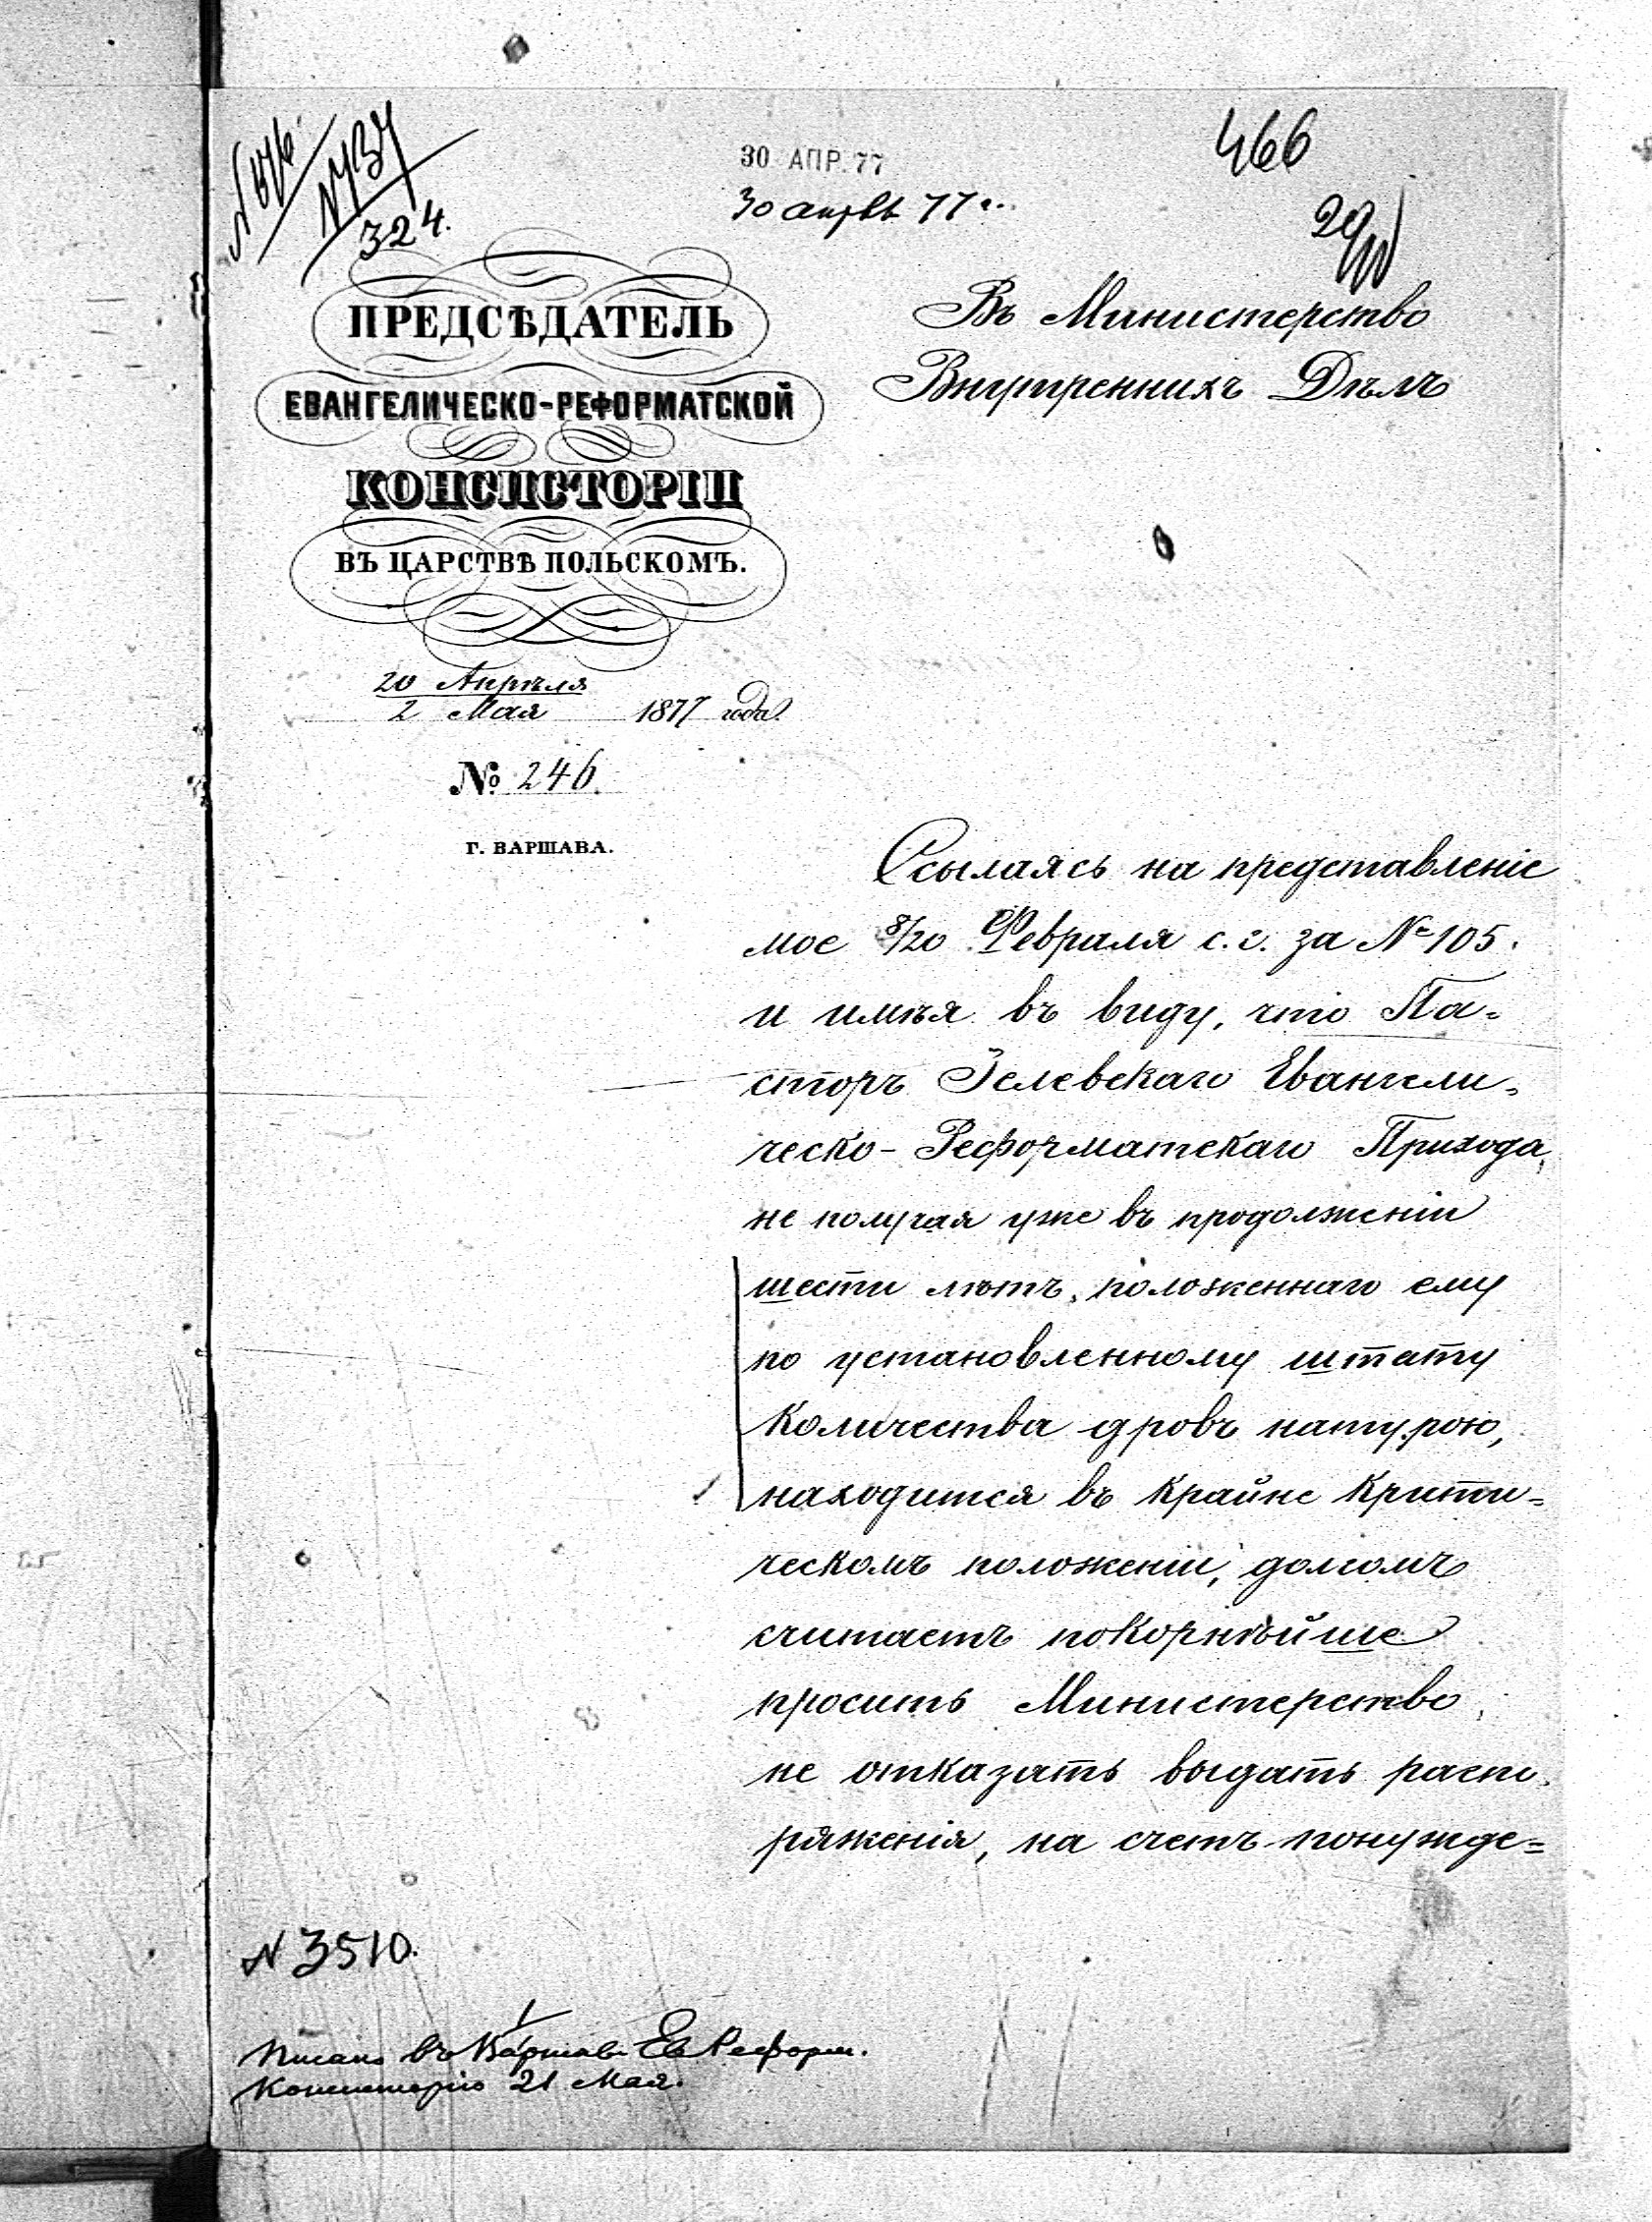 324.
30 АПР. 77
30 апрѣ 77 г.
466
ПРЕДСѢДАТЕЛЬ
ЕВАНГЕЛИЧЕСКО-РЕФОРМАТСКОЙ
КОНСИСТОРІИ
ВЪ ЦАРСТВѢ ПОЛЬСКОМЪ.
20 Апрѣля
2 Мая 1877 года.
№ 246.
Г. ВАРШАВА.
Въ Министерство
Внутреннихъ Дѣлъ
Ссылаясь на представленіе
мое 8/20 Февраля с. г. за № 105.
и имѣя въ виду, что Па=
сторъ Зелевскаго Евангели=
ческо-Реформатскаго Прихода,
не получая уже въ продолженіи
шести лѣтъ, положеннаго ему
по установленному штату
количества дровъ натурою,
находится въ крайне крити=
ческомъ положеніи, долгомъ
считаетъ покорнѣйше
просить Министерство,
не отказать выдать распо=
ряженія, на счетъ понужде=
N 3510.
Писано въ Варшав. Ев. Реформ.
Консисторію 21 Мая.